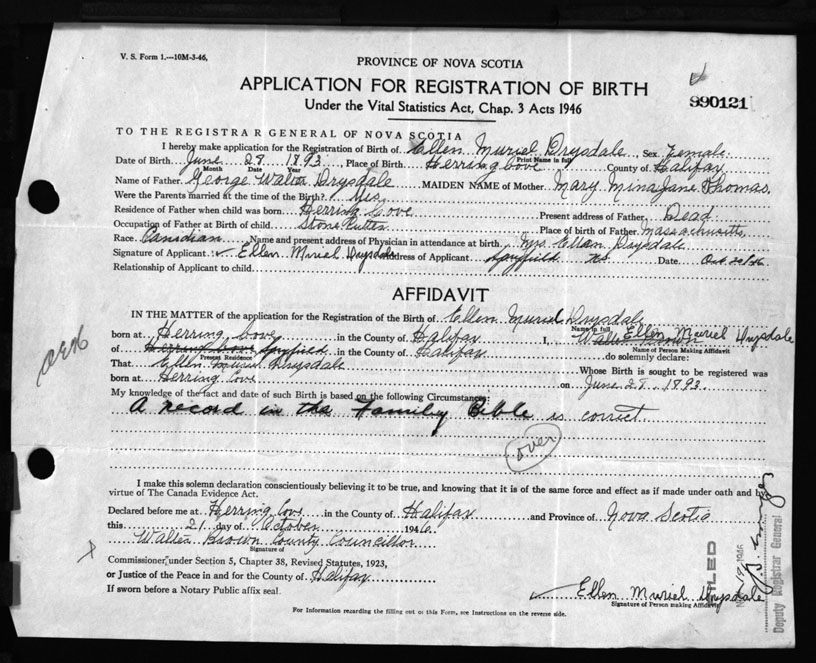 V. S. Form 1.—10M-3-46,
PROVINCE OF NOVA SCOTIA
APPLICATION FOR REGISTRATION OF BIRTH
Under the Vital Statistics Act, Chap. 3 Acts 1946
990121
TO THE REGISTRAR GENERAL OF NOVA SCOTIA
I hereby make application for the Registration of Birth of Ellen Muriel Drysdale, Sex Female
Print Name in full
Date of Birth June 28 1893 Place of Birth Herring Cove County of Halifax
Month Date Year
Name of Father George Walter Drysdale MAIDEN NAME of Mother Mary Mina Jane Thomas.
Were the Parents married at the time of the Birth? Yes
Residence of Father when child was born Herring Cove Present address of Father Dead
Occupation of Father at Birth of child Stone Cutter Place of birth of Father Massachusetts
Race Canidian Name and present address of Physician in attendance at birth Mrs Ellen Drysdale
Signature of Applicant Ellen Muriel Drysdale Address of Applicant Spryfield NS Date Oct
Relationship of Applicant to child
AFFIDAVIT
IN THE MATTER of the application for the Registration of the Birth of Ellen Muriel Drysdale
Name in full
born at Herring Cove in the County of Halifax I, Walter Brown Ellen Muriel Drysdale
Name of Person Making Affidavit
of Herring Cove Spryfield in the County of Halifax do solemnly declare:
Present Residence
That Ellen Muriel Drysdale Whose Birth is sought to be registered was
born at Herring Cove on June 28 1893
My knowledge of the fact and date of such Birth is based on the following Circumstances:
A record in the Familey Bible is correct
over
I make this solemn declaration conscientiously believing it to be true, and knowing that it is of the same force and effect as if made under oath and by
virtue of The Canada Evidence Act.
Declared before me at Herring Cove in the County of Halifax and Province of Nova Scotia
this 21 day of October 1946
Walter Brown County Councillor
Signature of
Commissioner, under Section 5, Chapter 38, Revised Statutes, 1923,
or Justice of the Peace in and for the County of Halifax
If sworn before a Notary Public affix seal.
Ellen Muriel Drysdale
Signature of Person making Affidavit
For Information regarding the filling out of this Form, see Instructions on the reverse side.
FILED
1946
Deputy Registrar General